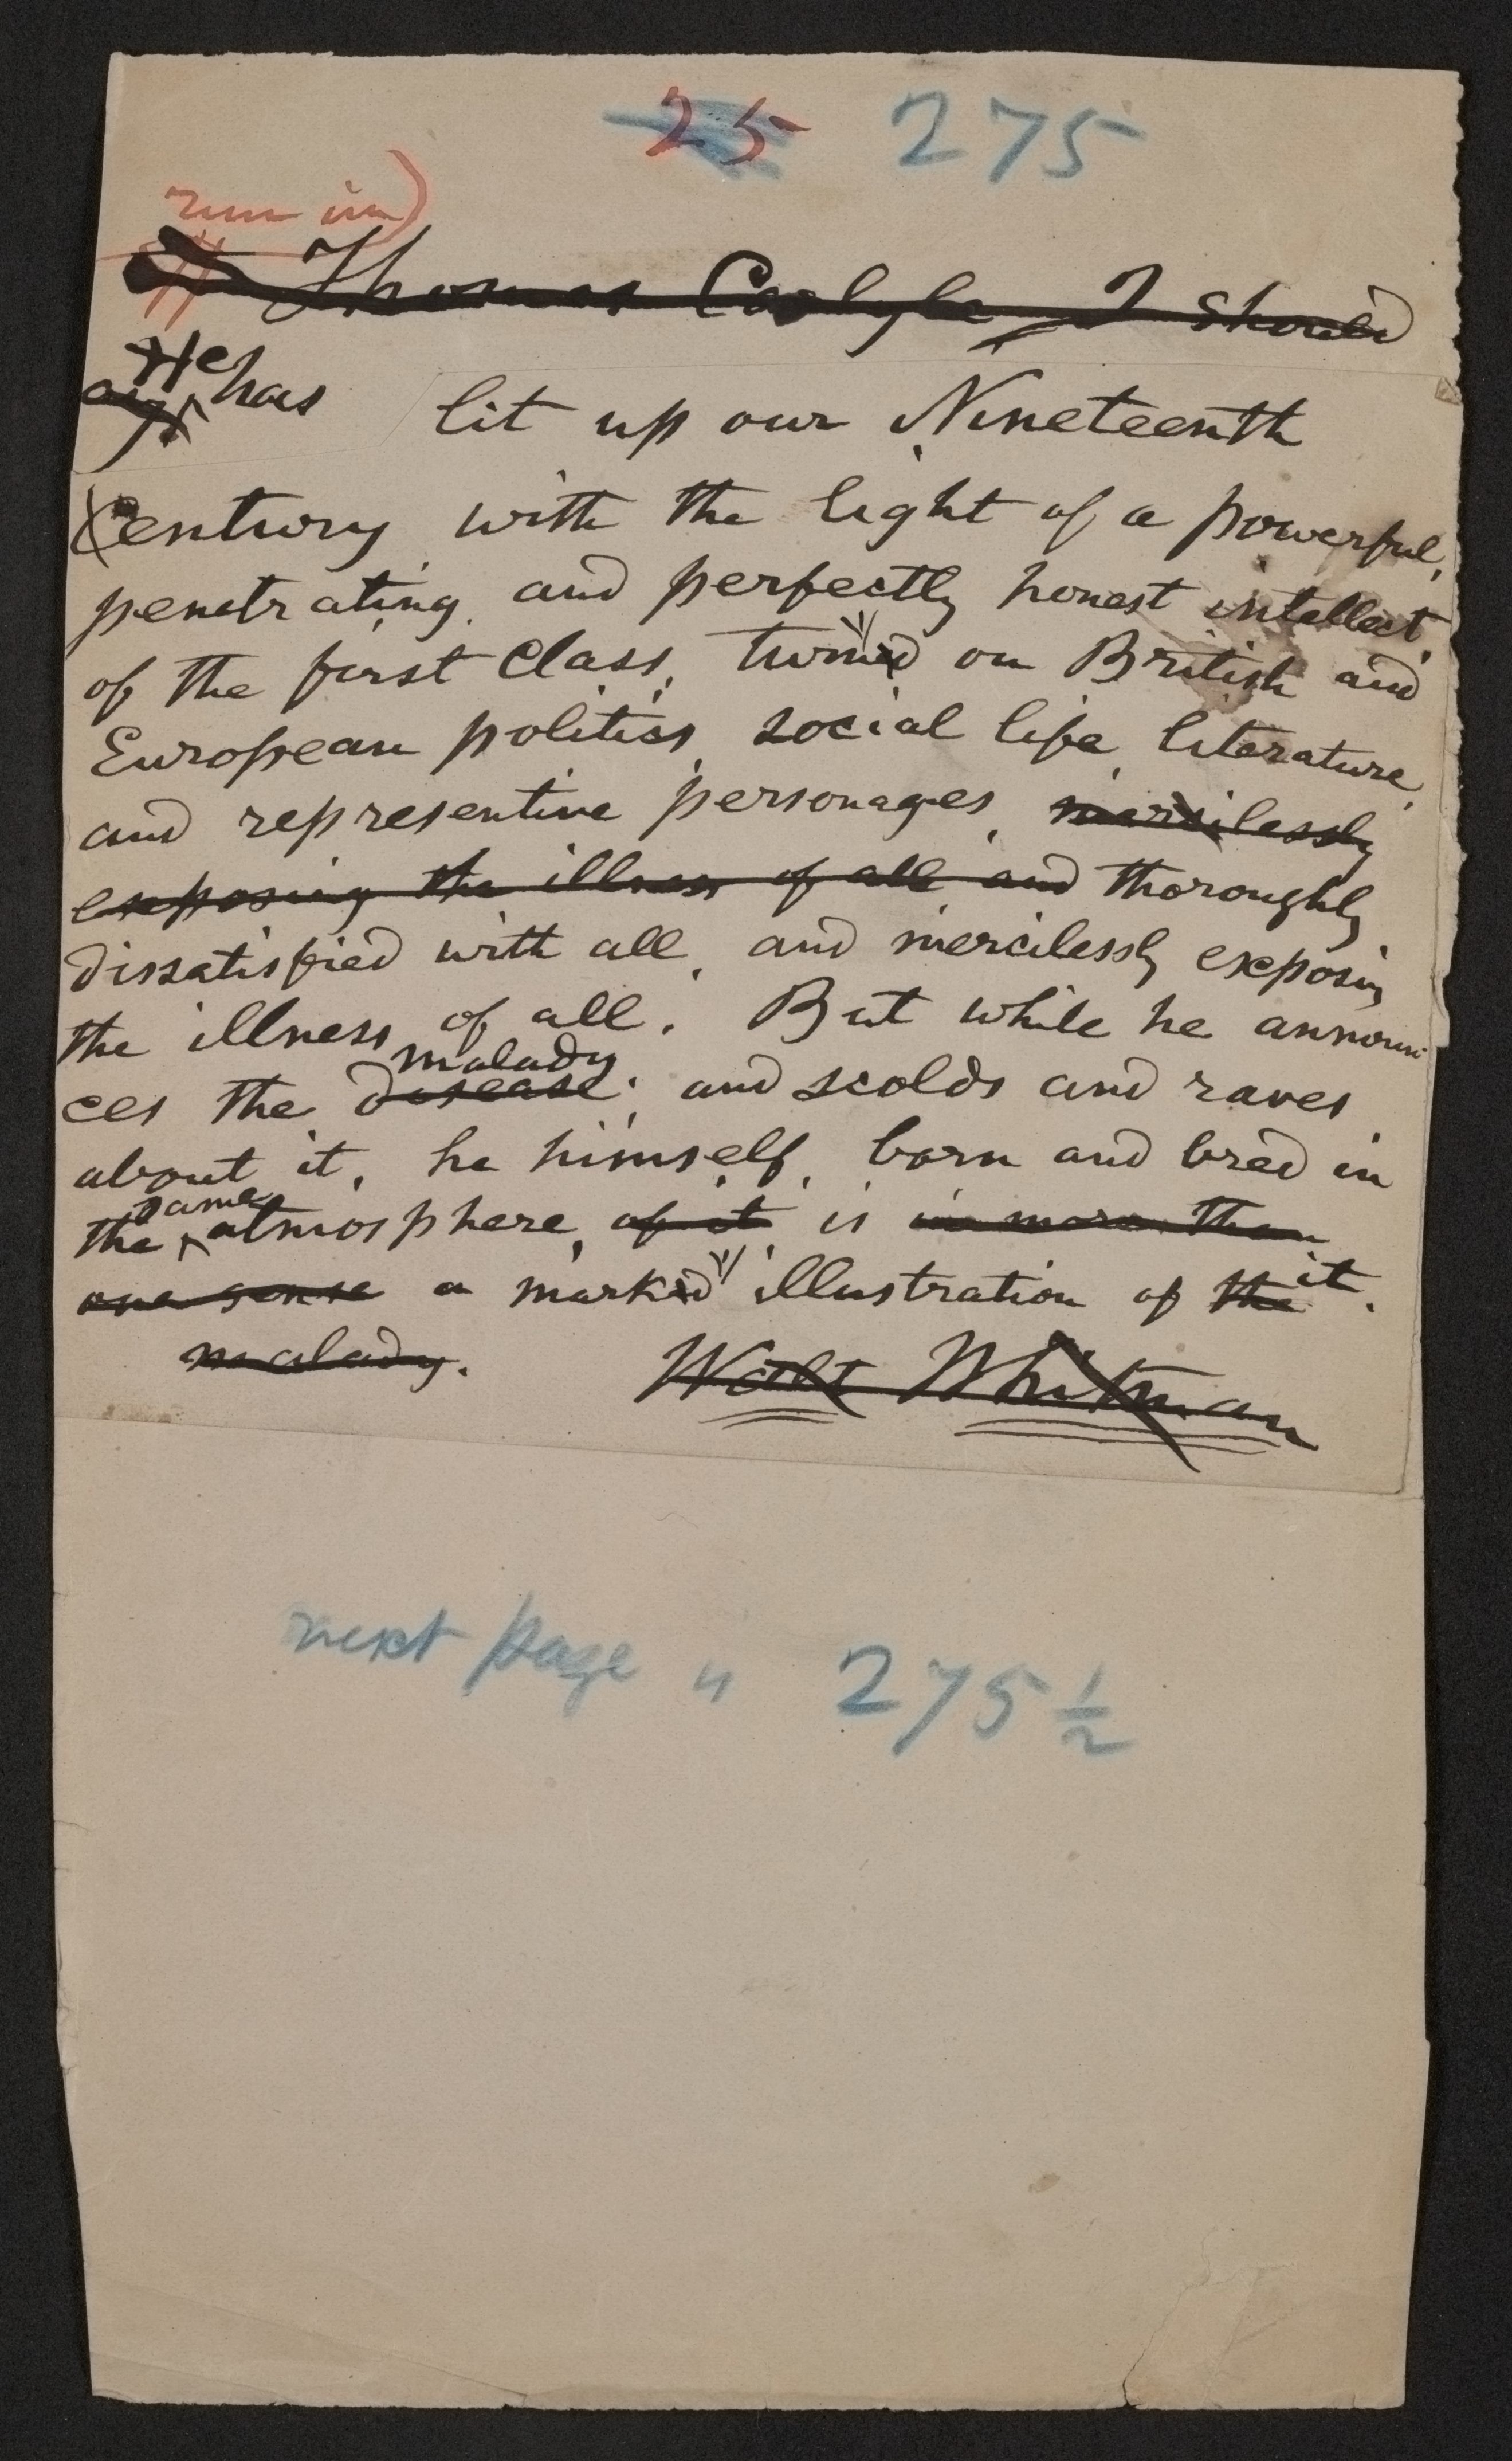 25 275
run in)
Thomas Carlyle, I should
say He has lit up our Nineteenth
Century with the light of a powerful,
penetrating, and perfectly honest intellect
of the first class, turn'd on British and
European politics, social life, literature,
and representive personages, mercilessly
exposing the illness of all and thoroughly
dissatisfied with all, and mercilessly exposing
the illness of all. But while he announ-
malady
ces the disease, and scolds and raves
about it, he himself, born and bred in
same
the ^ atmosphere, of it is in more than
one sense a mark'd illustration of the it.
malady. Walt Whitman
next page " 275 ½